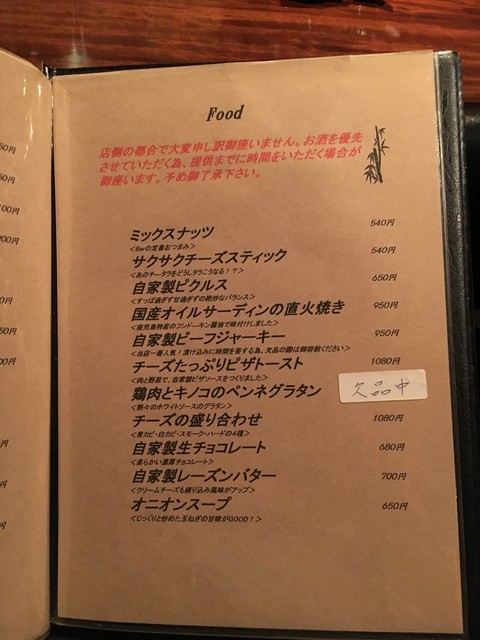 Food
店側の都合で大変申し訳御座いません。お酒を優先
させていただく為、提供までに時間をいただく場合が
御座います。予め御了承下さい。
ミックスナッツ 540円
<Barの定番おつまみ>
サクサクチーズスティック 540円
<あのチータラをどうしタラこうなる!?>
自家製ピクルス 650円
<すっぱ過ぎず甘過ぎずの絶妙なバランス>
国産オイルサーディンの直火焼き 950円
<鹿児島特産のフンドーキン醤油で味付けしました>
自家製ビーフジャーキー 950円
<当店一番人気!漬け込みに時間を要する為、欠品の際は御容赦ください>
チーズたっぷりピザトースト 1080円
<肉と野菜で、自家製ピザソースをつくりました>
鶏肉とキノコのペンネグラタン 欠品中
<熱々のホワイトソースのグラタン>
チーズの盛り合わせ 1080円
<青カビ・白カビ・スモーク・ハードの4種>
自家製生チョコレート 680円
<柔らかい濃厚チョコレート>
自家製レーズンバター 700円
<クリームチーズも練り込み風味がアップ>
オニオンスープ 650円
<じっくりと炒めた玉ねぎの甘味がGOOD!>